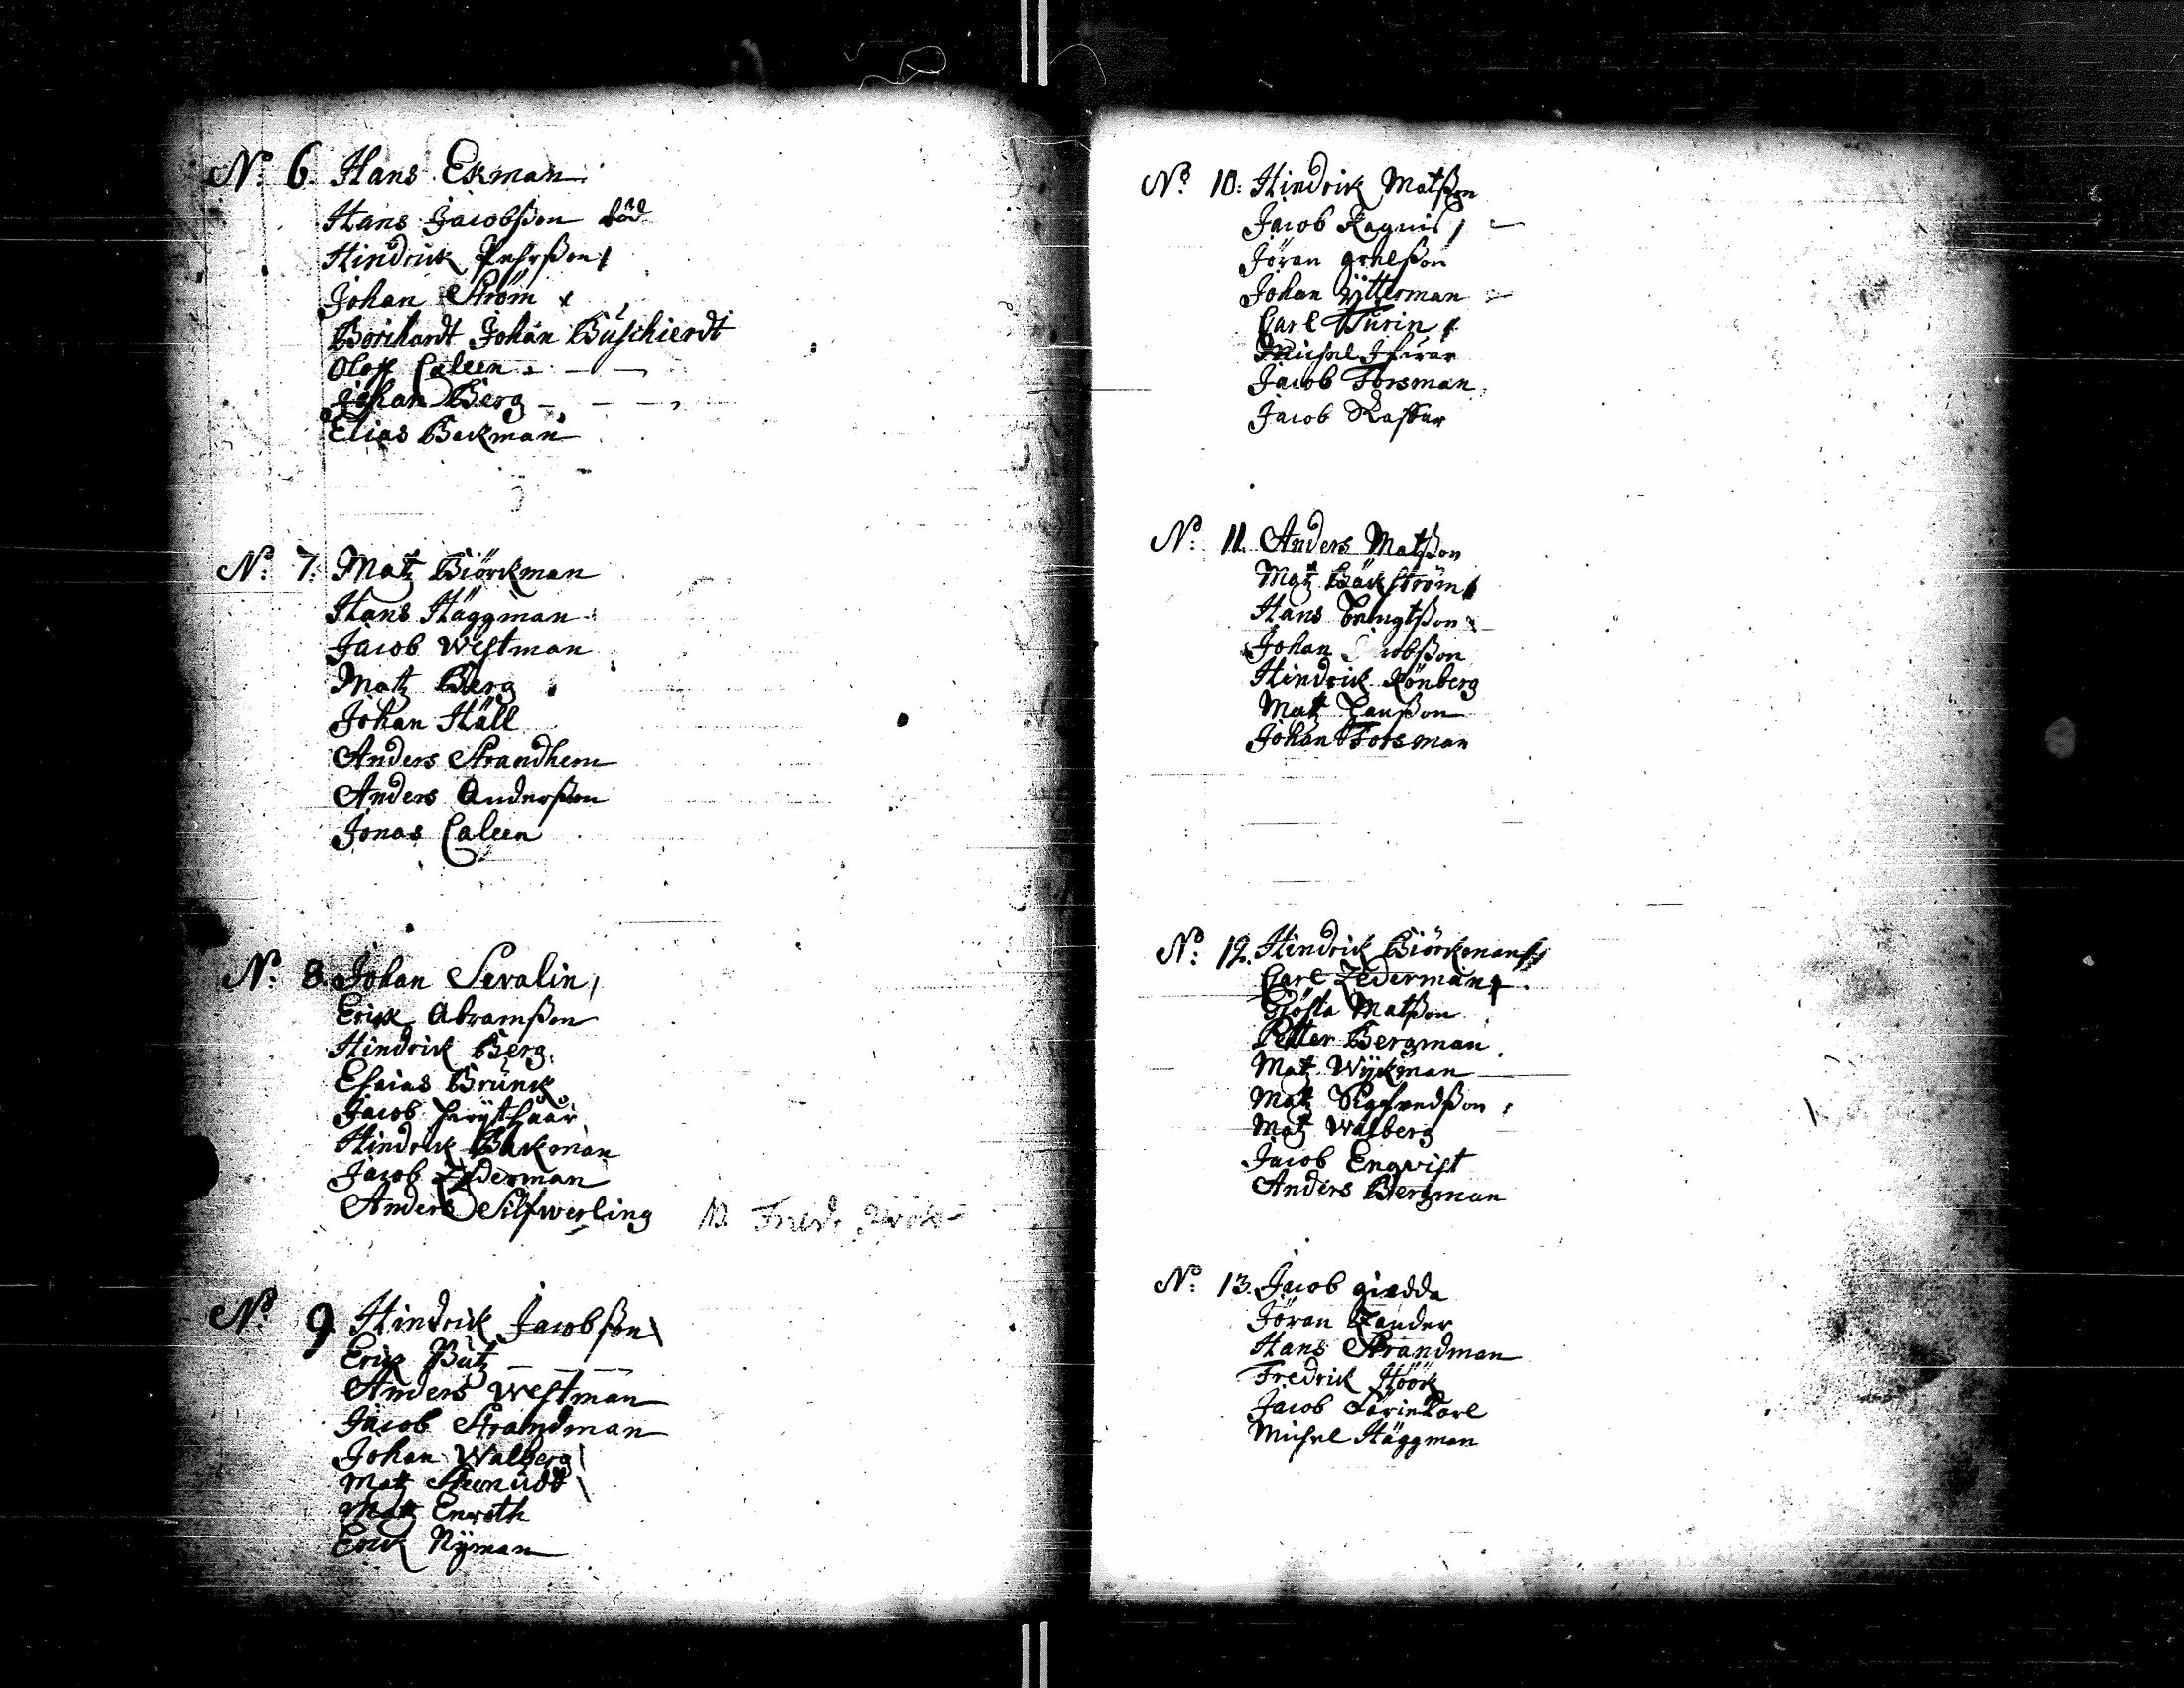 No: 6. Hans Ekman
Hans Jacobsson död
Hindrick Pehrsson
Johan Ström
Borchardt Johan Buschierdt
Oloff Caleen
Johan Berg
Elias Beckman
No: 7: Matz Biörckman
Hans Häggman
Jacob Westman
Matz Berg
Johan Häll
Anders Strandhem
Anders Andersson
Jonas Caleen
No: 8. Johan Sevalin
Erick Abramsson
Hindrick Berg
Esaias Brunck
Jacob
Hindrick Backman
Jacob Zederman
Anders Silfwerling
No: 9 Hindrick Jacobsson
Erick Putz
Anders Westman
Jacob Strandman
Johan Walberg
Matz
Matz Enroth
Erick Nÿman
No: 10: Hindrick Matsson
Jacob Ragnis
Jöran
Johan Ÿtterman
Carl Turin
Michel
Jacob Forsman
Jacob
No: 11. Anders Matsson
Matz Bäckström
Hans Bengtsson
Johan Jacobsson
Hindrick Rönberg
Matz
Johan Forsman
No: 12. Hindrick Biörckman
Carl Zederman
Giösta Matsson
Petter Bergman
Matz Wÿckman
Matz Sigfredsson
Matz Walberg
Jacob Enqvist
Anders Bergman
No: 13. Jacob giädda
Jöran Zander
Hans Strandman
Fredrick Höök
Jacob
Michel Häggman